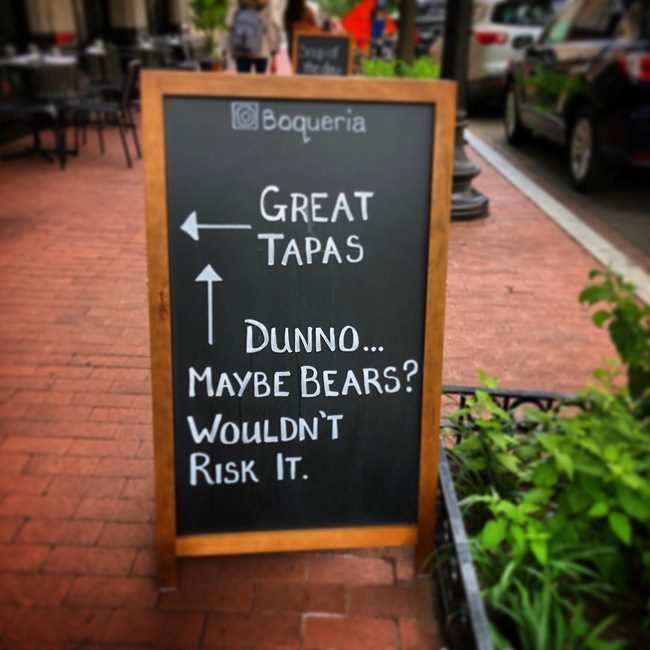 Boqueria
GREAT
TAPAS
DUNNO...
MAYBE BEARS?
WOULDN'T
RISK IT.